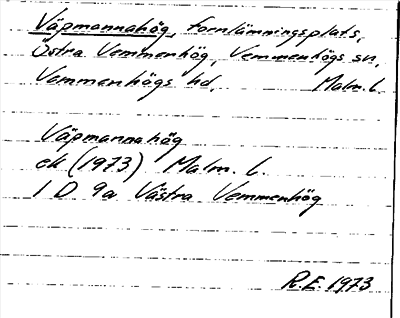 Väpmannahög, fornlämningsplats,
Östra Vemmenhög, Vemmenhögs sn,
Vemmenhögs hd. Malm. l.
Väpmannahög
ek (1973) Malm. l.
1 D 9a Västra Vemmenhög
R.E. 1973